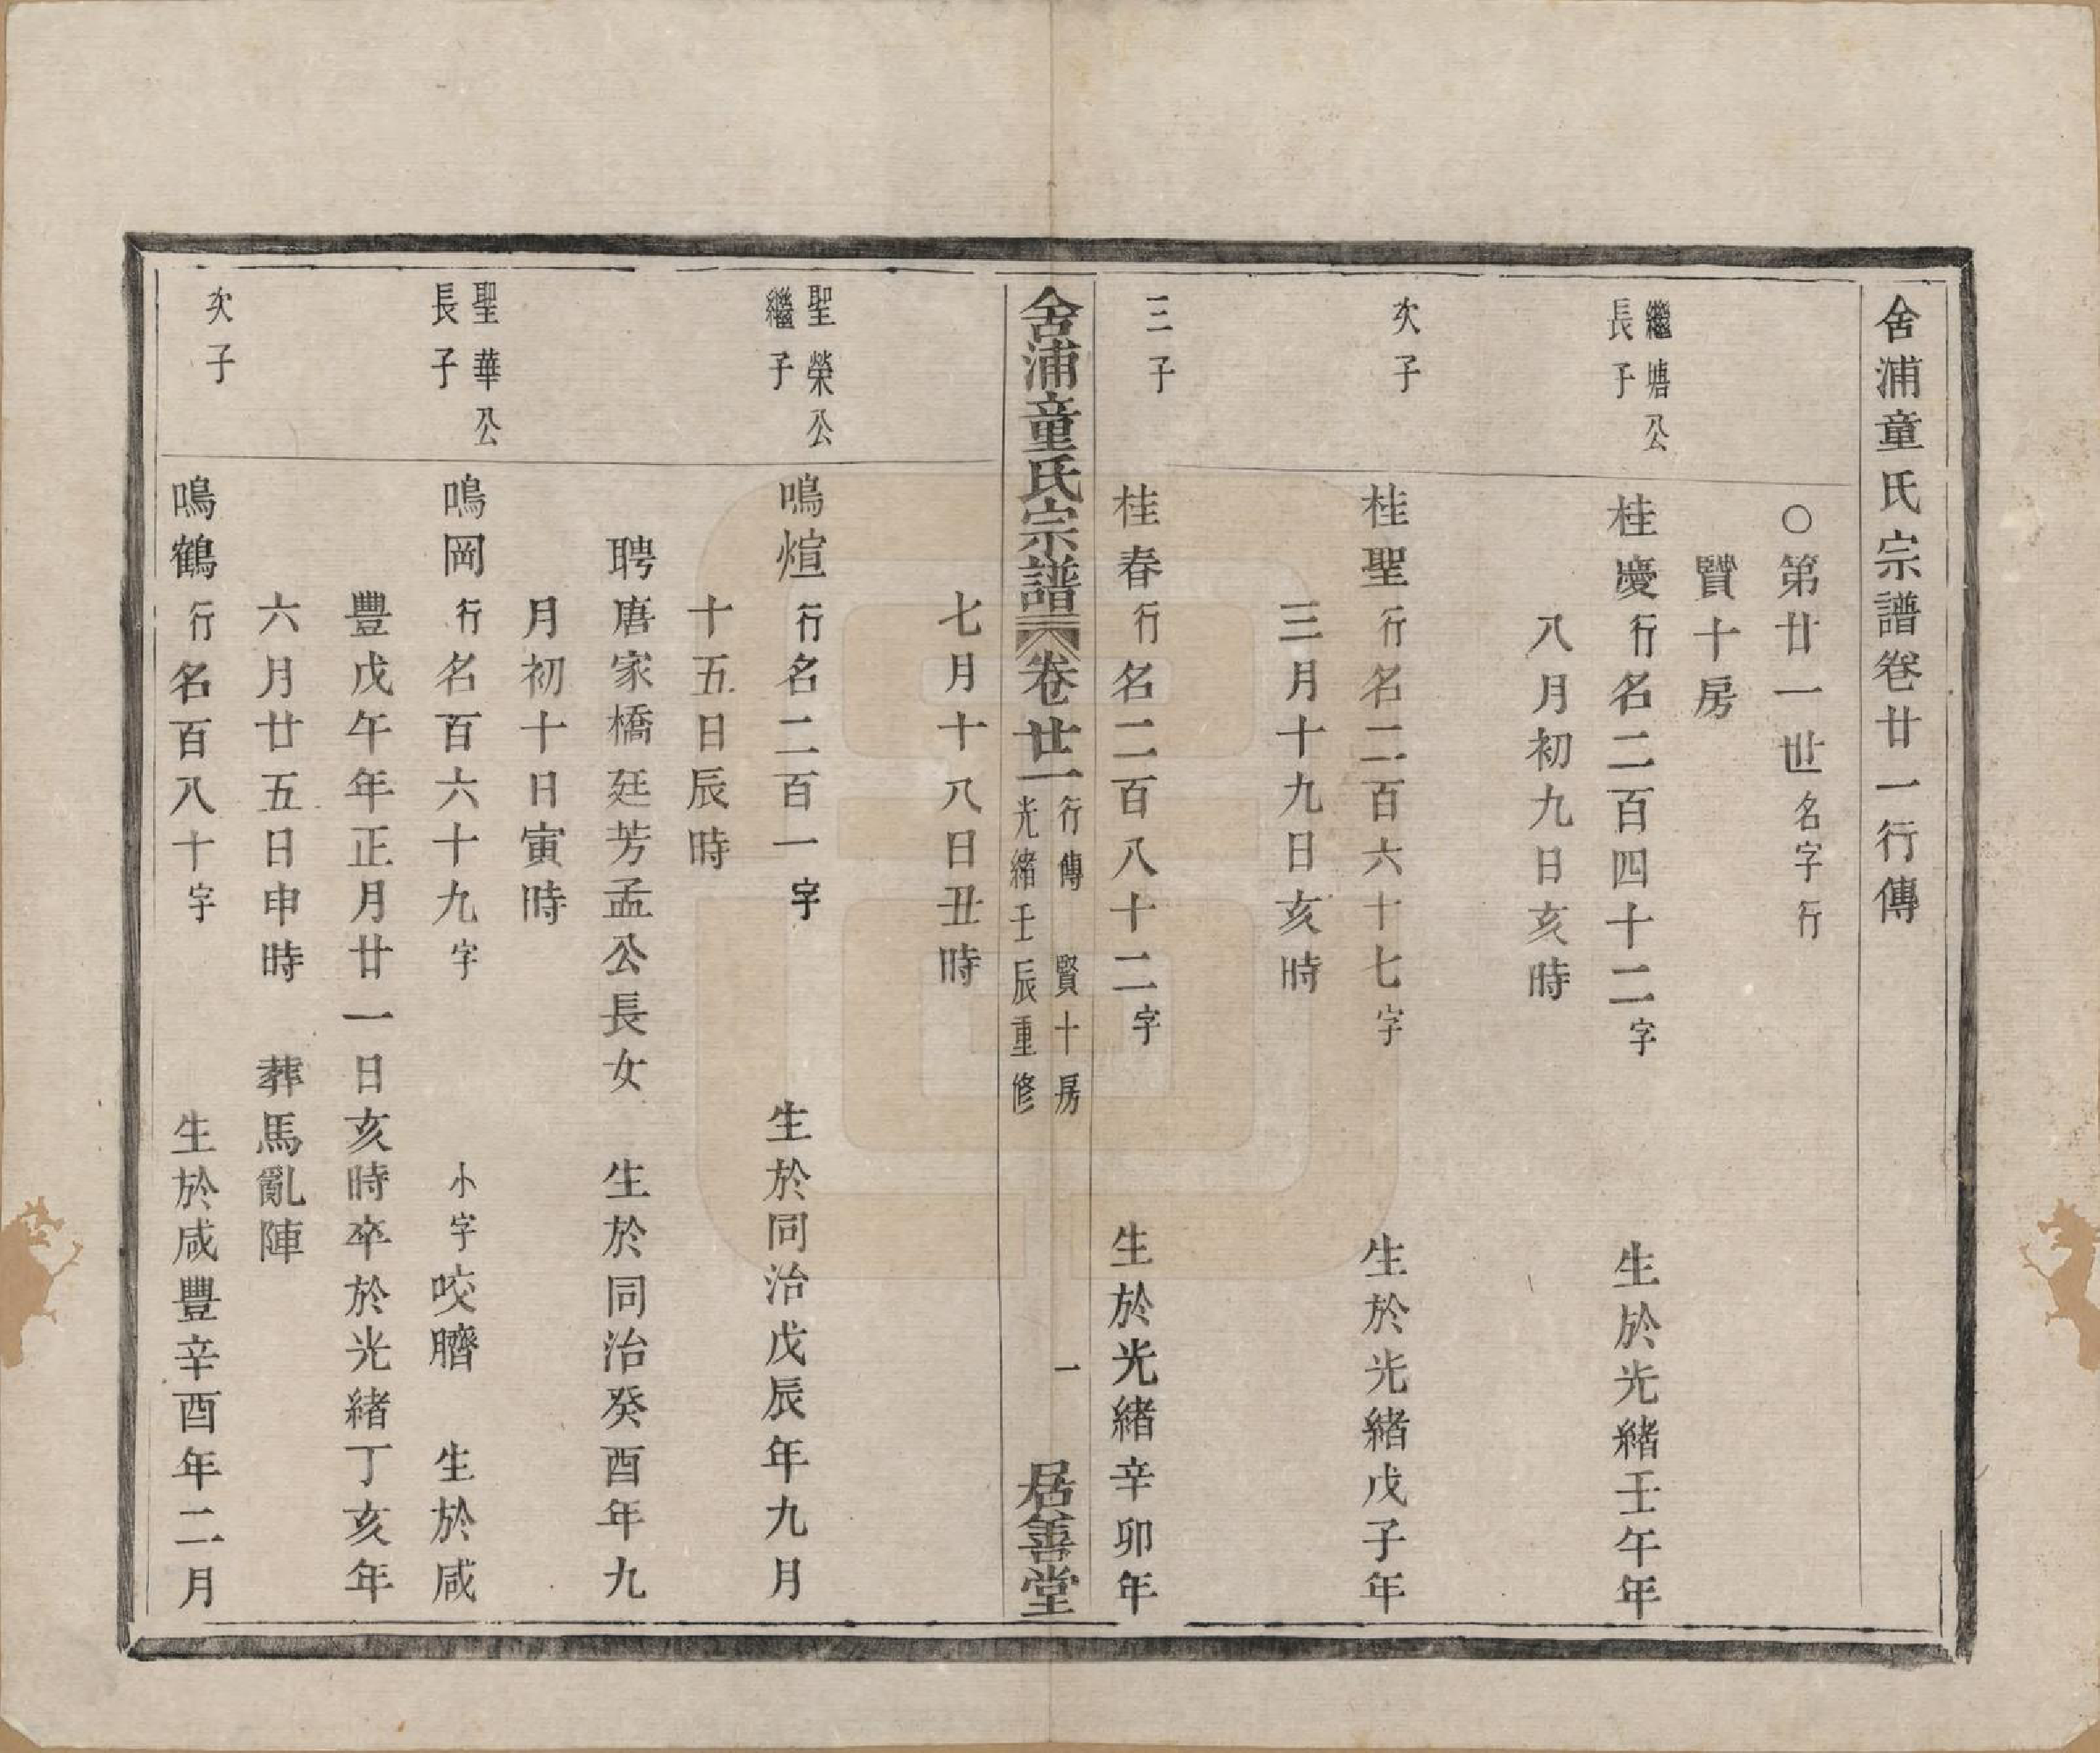 舍浦童氏宗譜卷廿一行傳
○第廿一世名字行
賢十房
繼塘公長子
桂慶行名二百四十二字 生於光緒壬午年
八月初九日亥時
次子
桂聖行名二百六十七字 生於光緒戊子年
三月十九日亥時
三子
桂春行名二百八十二字 生於光緒辛卯年
舍浦童氏宗譜 卷廿一 行傳 賢十房 光緒壬辰重修 一 居善堂
七月十八日丑時
聖榮公繼子
鳴煊行名二百一字 生於同治戊辰年九月
十五日辰時
聘唐家橋廷芳孟公長女 生於同治癸酉年九
月初十日寅時
聖華公長子
鳴岡行名百六十九字 小字咬臍 生於咸
豐戊午年正月廿一日亥時卒於光緒丁亥年
六月廿五日申時 葬馬亂陣
次子
鳴鶴行名百八十字 生於咸豐辛酉年二月